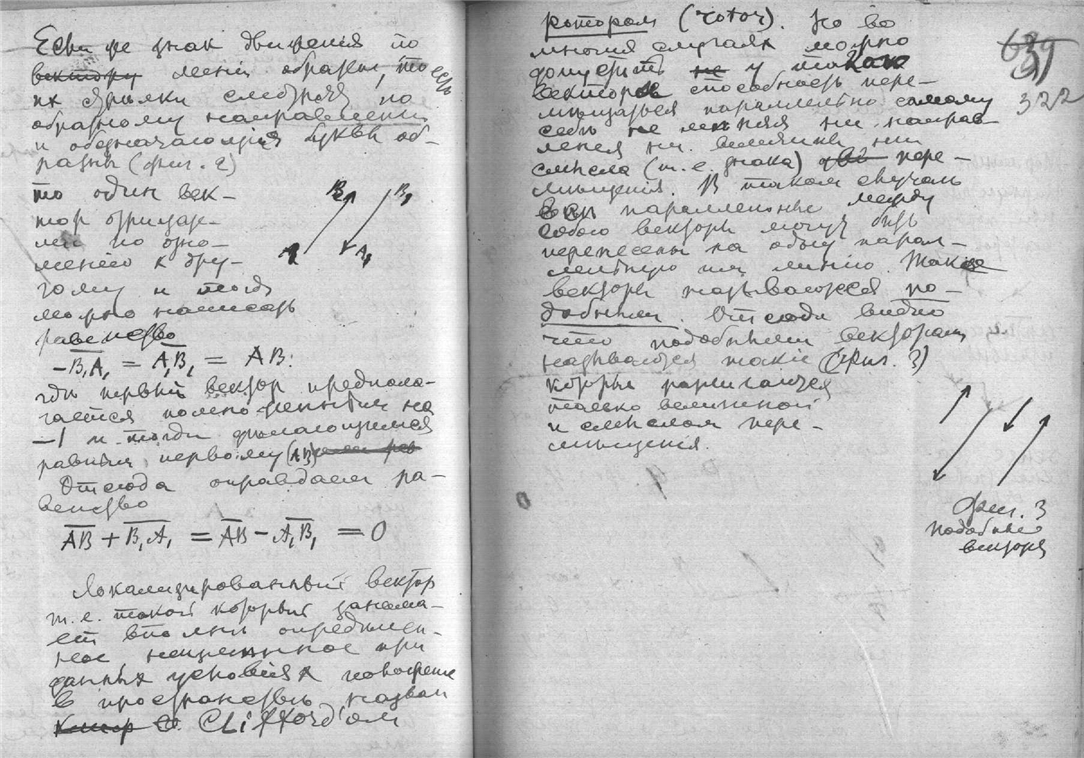 Если же знак движения по
вектору менѣе образы, то есть
их стрѣлки смотрят по
обратному направлению
и обозначающія буквы об-
разны (фиг. 2)
то один век-
тор отрицате-
лен по отно-
шенію к дру-
гому и тогда
можно написать
равенство
B₂ B₁
A A₁
-B₁A₁ = A₁B₁ = AB.
гдѣ первый вектор предпола-
гается помноженным на
-1 и тогда дѣлающимся
равным первому (AB)
Отсюда оправдаем ра-
венство
AB + B₁A₁ = AB - A₁B₁ = 0
Локализированный вектор
т. е. такой который занима-
ет вполнѣ опредѣлен-
ное неизмѣнное при
данных условіях положение
в пространствѣ назван
Clifford'ом
ротором (rotor). Но во
многих случаях можно
допустить у таких
векторов способность пере-
мещаться параллельно самому
себѣ не мѣняя ни направ-
ления ни величины ни
смысла (т. е. знака) пере-
мѣщения. В таком случаѣ
всѣ параллельные между
собою вектора могут быть
перенесены на одну парал-
лельную им линию. Такие
вектора называются по-
добными. Отсюда видно
что подобными векторами
называются такіе (фиг. 3)
которые различаются
только величиной
и смыслом пере-
мѣщения.
639
322
Фиг. 3
подобные
вектора